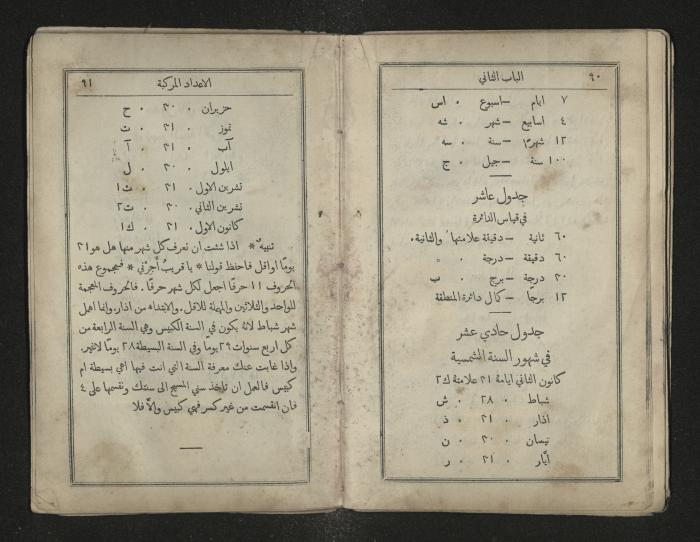 ٩٠ الباب الثاني
٧ ايام – اسبوع ٠ اس
٤ اسابيع – شهر ٠ شه
١٢ شهرًا – سنة ٠ سه
١٠٠ سنة – جيل ٠ ج
جدول عاشر
في قياس الدائرة
٦٠ ثانية – دقيقة علامتها ′ والثانية ″
٦٠ دقيقة – درجة ٠ °
٣٠ درجة – برج ٠ ب
١٢ برجًا – كمال دائرة المنطقة
جدول حادي عشر
في شهور السنة الشمسية
كانون الثاني ايامهُ ٣١ علامتهُ ك٢
شباط ٠ ٢٨ ٠ ش
اذار ٠ ٣١ ٠ ذ
نيسان ٠ ٣٠ ٠ ن
ايّار ٠ ٣١ ٠ ر
الاعداد المركبة ٩١
حزيران ٠ ٣٠ ٠ ح
تموز ٠ ٣١ ٠ ت
آب ٠ ٣١ ٠ آ
ايلول ٠ ٣٠ ٠ ل
تشرين الاول ٠ ٣١ ٠ ت١
تشرين الثاني ٠ ٣٠ ٠ ت٢
كانون الاول ٠ ٣١ ٠ ك١
تنبيهٌ * اذا شئت ان تعرف كل شهر منها هل هو ٣١
يومًا او اقل فاحفظ قولنا * يا قريبُ أَجِرْني * فمجموع هذه
الحروف ١١ حرفًا اجعل لكل شهر حرفًا. فالحروف المعجمة
للواحد والثلاثين والمهملة للاقل. والابتداء من اذار. وانما اهمل
شهر شباط لانهُ يكون في السنة الكبيس وهي السنة الرابعة من
كل اربع سنوات ٢٩ يومًا وفي السنة البسيطة ٢٨ يومًا لا غير.
واذا غابت عنك معرفة السنة التي انت فيها اهي بسيطة ام
كبيس فالعمل ان تاخذ سني المسيح الى سنتك وتقسمها على ٤
فان انقسمت من غير كسر فهي كبيس والّا فلا